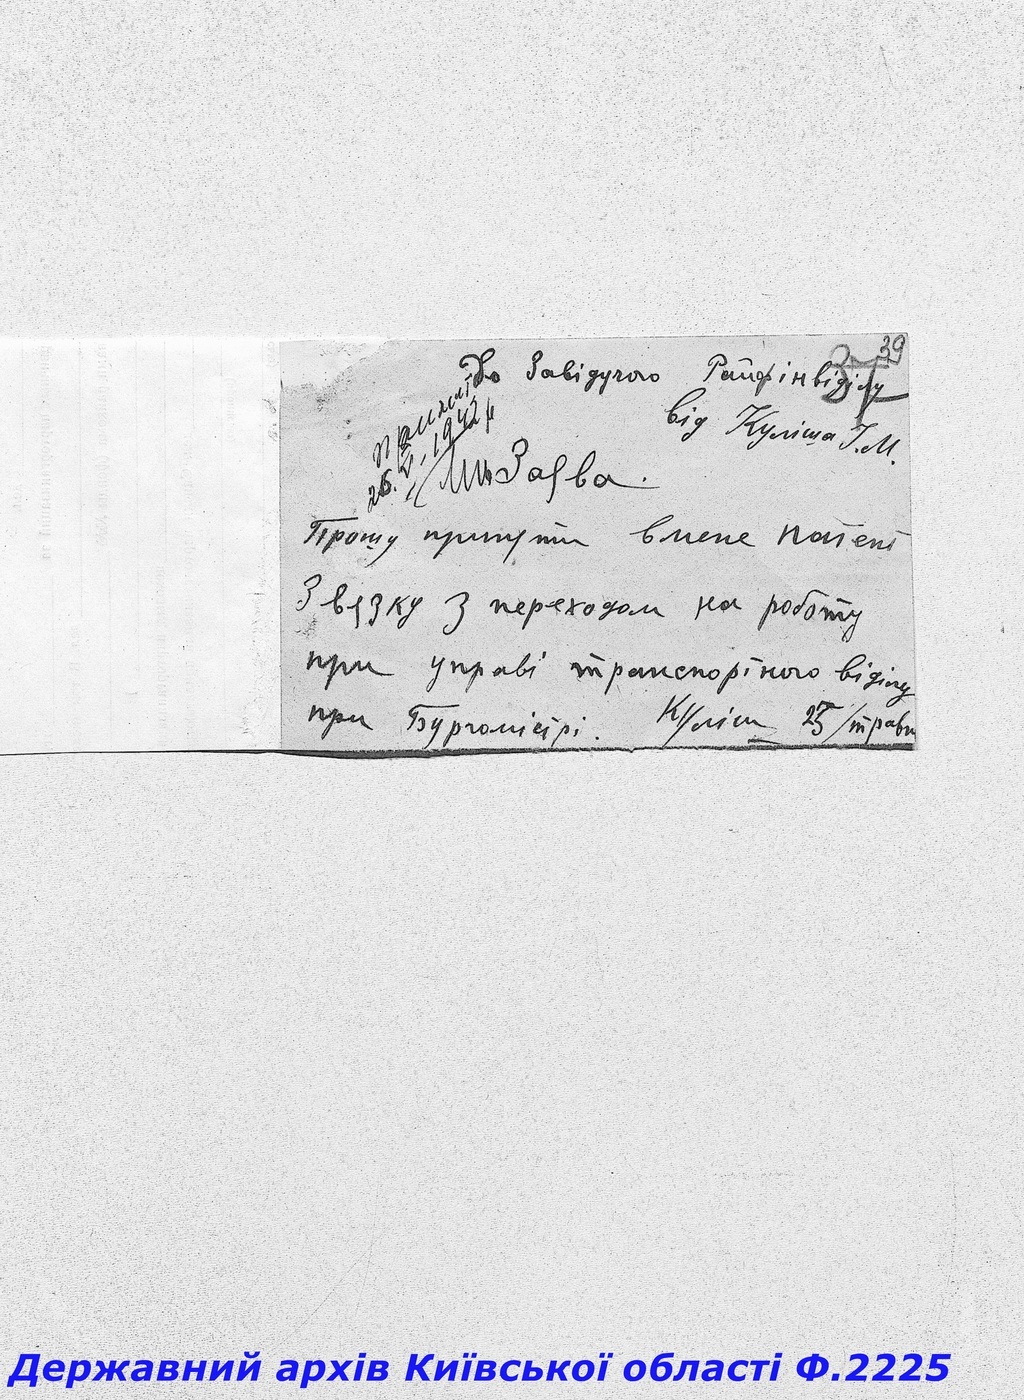 39
До Завідучого Райфінвіділу
від Куліша І.М.
26.V.1942р
Заява.
Прошу принути вмене патент
Звязку З переходом на роботу
при управі транспортного віділу
при Бургомістрі. Куліш 25/травн
Державний архів Київської області Ф.2225